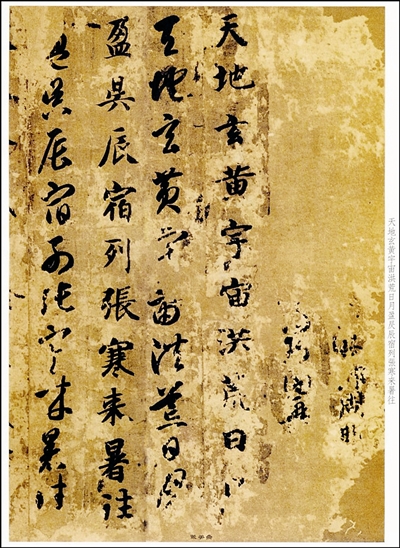 天地玄黄宇宙洪荒日月盈昃辰宿列张寒来暑往
天地玄黄宇宙洪荒日月
天地玄黄宇宙洪荒日月
盈昃辰宿列張寒来暑往
盈昃辰宿列張寒来暑往